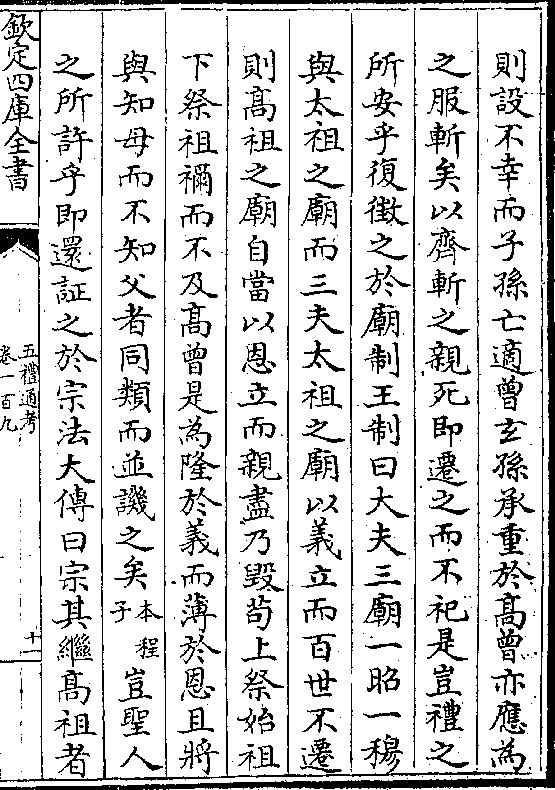 則設不幸而子孫亡適曾玄孫承重於高曾亦應為
之服斬矣以齊斬之親死即遷之而不祀是豈禮之
所安乎復徵之於廟制王制曰大夫三廟一昭一穆
與太祖之廟而三夫太祖之廟以義立而百世不遷
則高祖之廟自當以恩立而親盡乃毀苟上祭始祖
下祭祖禰而不及高曾是為隆於義而薄於恩且將
與知母而不知父者同類而並譏之矣本程子豈聖人
之所許乎即還証之於宗法大傳曰宗其繼高祖者
欽定四庫全書
五禮通考
卷一百九
十一